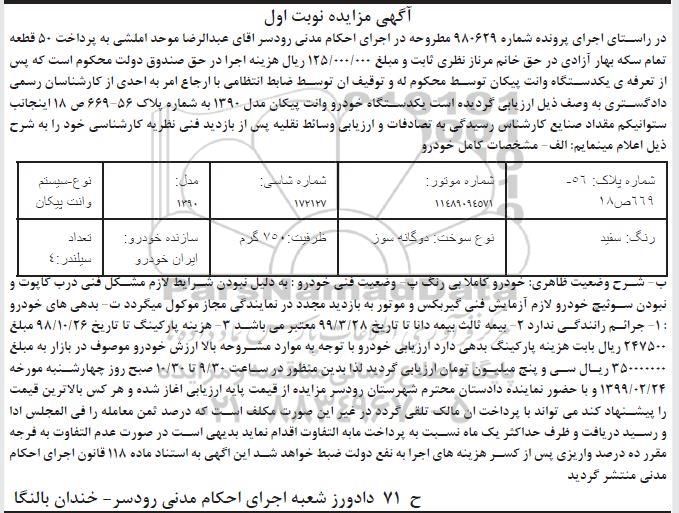 آگهی مزایده نوبت اول
در راستای اجرای پرونده شماره ۹۸۰۶۲۹ مطروحه در اجرای احکام مدنی رودسر اقای عبدالرضا موحد املشی به پرداخت ۵۰ قطعه
تمام سکه بهار آزادی در حق خانم مرناز نظری ثابت و مبلغ ۱۲۵/۰۰۰/۰۰۰ ریال هزینه اجرا در حق صندوق دولت محکوم است که پس
از تعرفه ی یکدستگاه وانت پیکان توسط محکوم له و توقیف ان توسط ضابط انتظامی با ارجاع امر به احدی از کارشناسان رسمی
دادگستری به وصف ذیل ارزیابی گردیده است یکدستگاه خودرو وانت پیکان مدل ۱۳۹۰ به شماره پلاک ۵۶-۶۶۹ ص ۱۸ اینجانب
ستوانیکم مقداد صنایع کارشناس رسیدگی به تصادفات و ارزیابی وسائط نقلیه پس از بازدید فنی نظریه کارشناسی خود را به شرح
ذیل اعلام مینمایم: الف- مشخصات کامل خودرو
شماره پلاک: ۵۶- ۶۶۹ص۱۸ شماره موتور: ۱۱۴۸۹۰۹۴۵۷۱ شماره شاسی: ۱۷۲۱۲۷ مدل: ۱۳۹۰ نوع-سیستم وانت پیکان
رنگ: سفید نوع سوخت: دوگانه سوز ظرفیت: ۷۵۰ گرم سازنده خودرو: ایران خودرو تعداد سیلندر: ۴
ب- شرح وضعیت ظاهری: خودرو کاملا بی رنگ پ- وضعیت فنی خودرو : به دلیل نبودن شرایط لازم مشکل فنی درب کاپوت و
نبودن سوئیچ خودرو لازم آزمایش فنی گیربکس و موتور به بازدید مجدد در نمایندگی مجاز موکول میگردد ت- بدهی های خودرو
: ۱- جرائم رانندگی ندارد ۲- بیمه ثالث بیمه دانا تا تاریخ ۹۹/۳/۲۸ معتبر می باشد ۳- هزینه پارکینگ تا تاریخ ۹۸/۱۰/۲۶ مبلغ
۲۴۷۵۰۰ ریال بابت هزینه پارکینگ بدهی دارد ارزیابی خودرو با توجه به موارد مشروحه بالا ارزش خودرو موصوف در بازار به مبلغ
۳۵۰۰۰۰۰۰۰ ریال سی و پنج میلیون تومان ارزیابی گردید لذا بدین منظور در ساعت ۹/۳۰ تا ۱۰/۳۰ صبح روز چهارشنبه مورخه
۱۳۹۹/۰۲/۲۴ و با حضور نماینده دادستان محترم شهرستان رودسر مزایده از قیمت پایه ارزیابی اغاز شده و هر کس بالاترین قیمت
را پیشنهاد کند می تواند با پرداخت ان مالک تلقی گردد در غیر این صورت مکلف است که درصد ثمن معامله را فی المجلس ادا
و رسید دریافت و ظرف حداکثر یک ماه نسبت به پرداخت مابه التفاوت اقدام نماید بدیهی است در صورت عدم التفاوت به فرجه
مقرر ده درصد واریزی پس از کسر هزینه های اجرا به نفع دولت ضبط خواهد شد این اگهی به استناد ماده ۱۱۸ قانون اجرای احکام
مدنی منتشر گردید
ح ۷۱ دادورز شعبه اجرای احکام مدنی رودسر- خندان بالنگا
ParsNamadData
۰۲۱-۸۸۳۴۹۶۷۰-۵